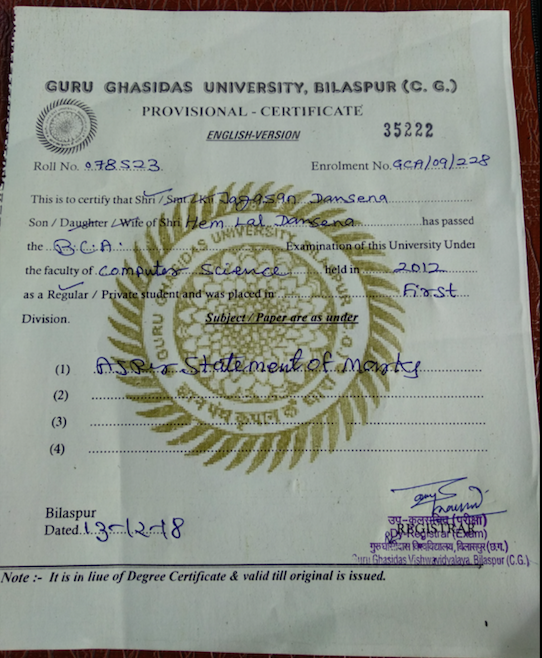 GURU GHASIDAS UNIVERSITY, BILASPUR (C. G.)
PROVISIONAL - CERTIFICATE
ENGLISH-VERSION
35222
Roll No. 078523
Enrolment No. GCA/09/228
This is to certify that Shri / Smt / Ku Dansena
Son / Daughter / Wife of Shri Hem Lal Dansena has passed
the B.C.A. Examination of this University Under
the faculty of Computer Science held in 2012
as a Regular / Private student and was placed in First
Division. Subject / Paper are as under
(1) As Per Statement of Marks
(2)
(3)
(4)
GURU GHASIDAS UNIVERSITY BILASPUR C.G.
Bilaspur
Dated 13-12-18
उप-कुलसचिव (परीक्षा)
REGISTRAR
Dy. Registrar (Exam)
गुरु घासीदास विश्वविद्यालय, बिलासपुर (छ.ग.)
Guru Ghasidas Vishwavidyalaya, Bilaspur (C.G.)
Note :- It is in liue of Degree Certificate & valid till original is issued.